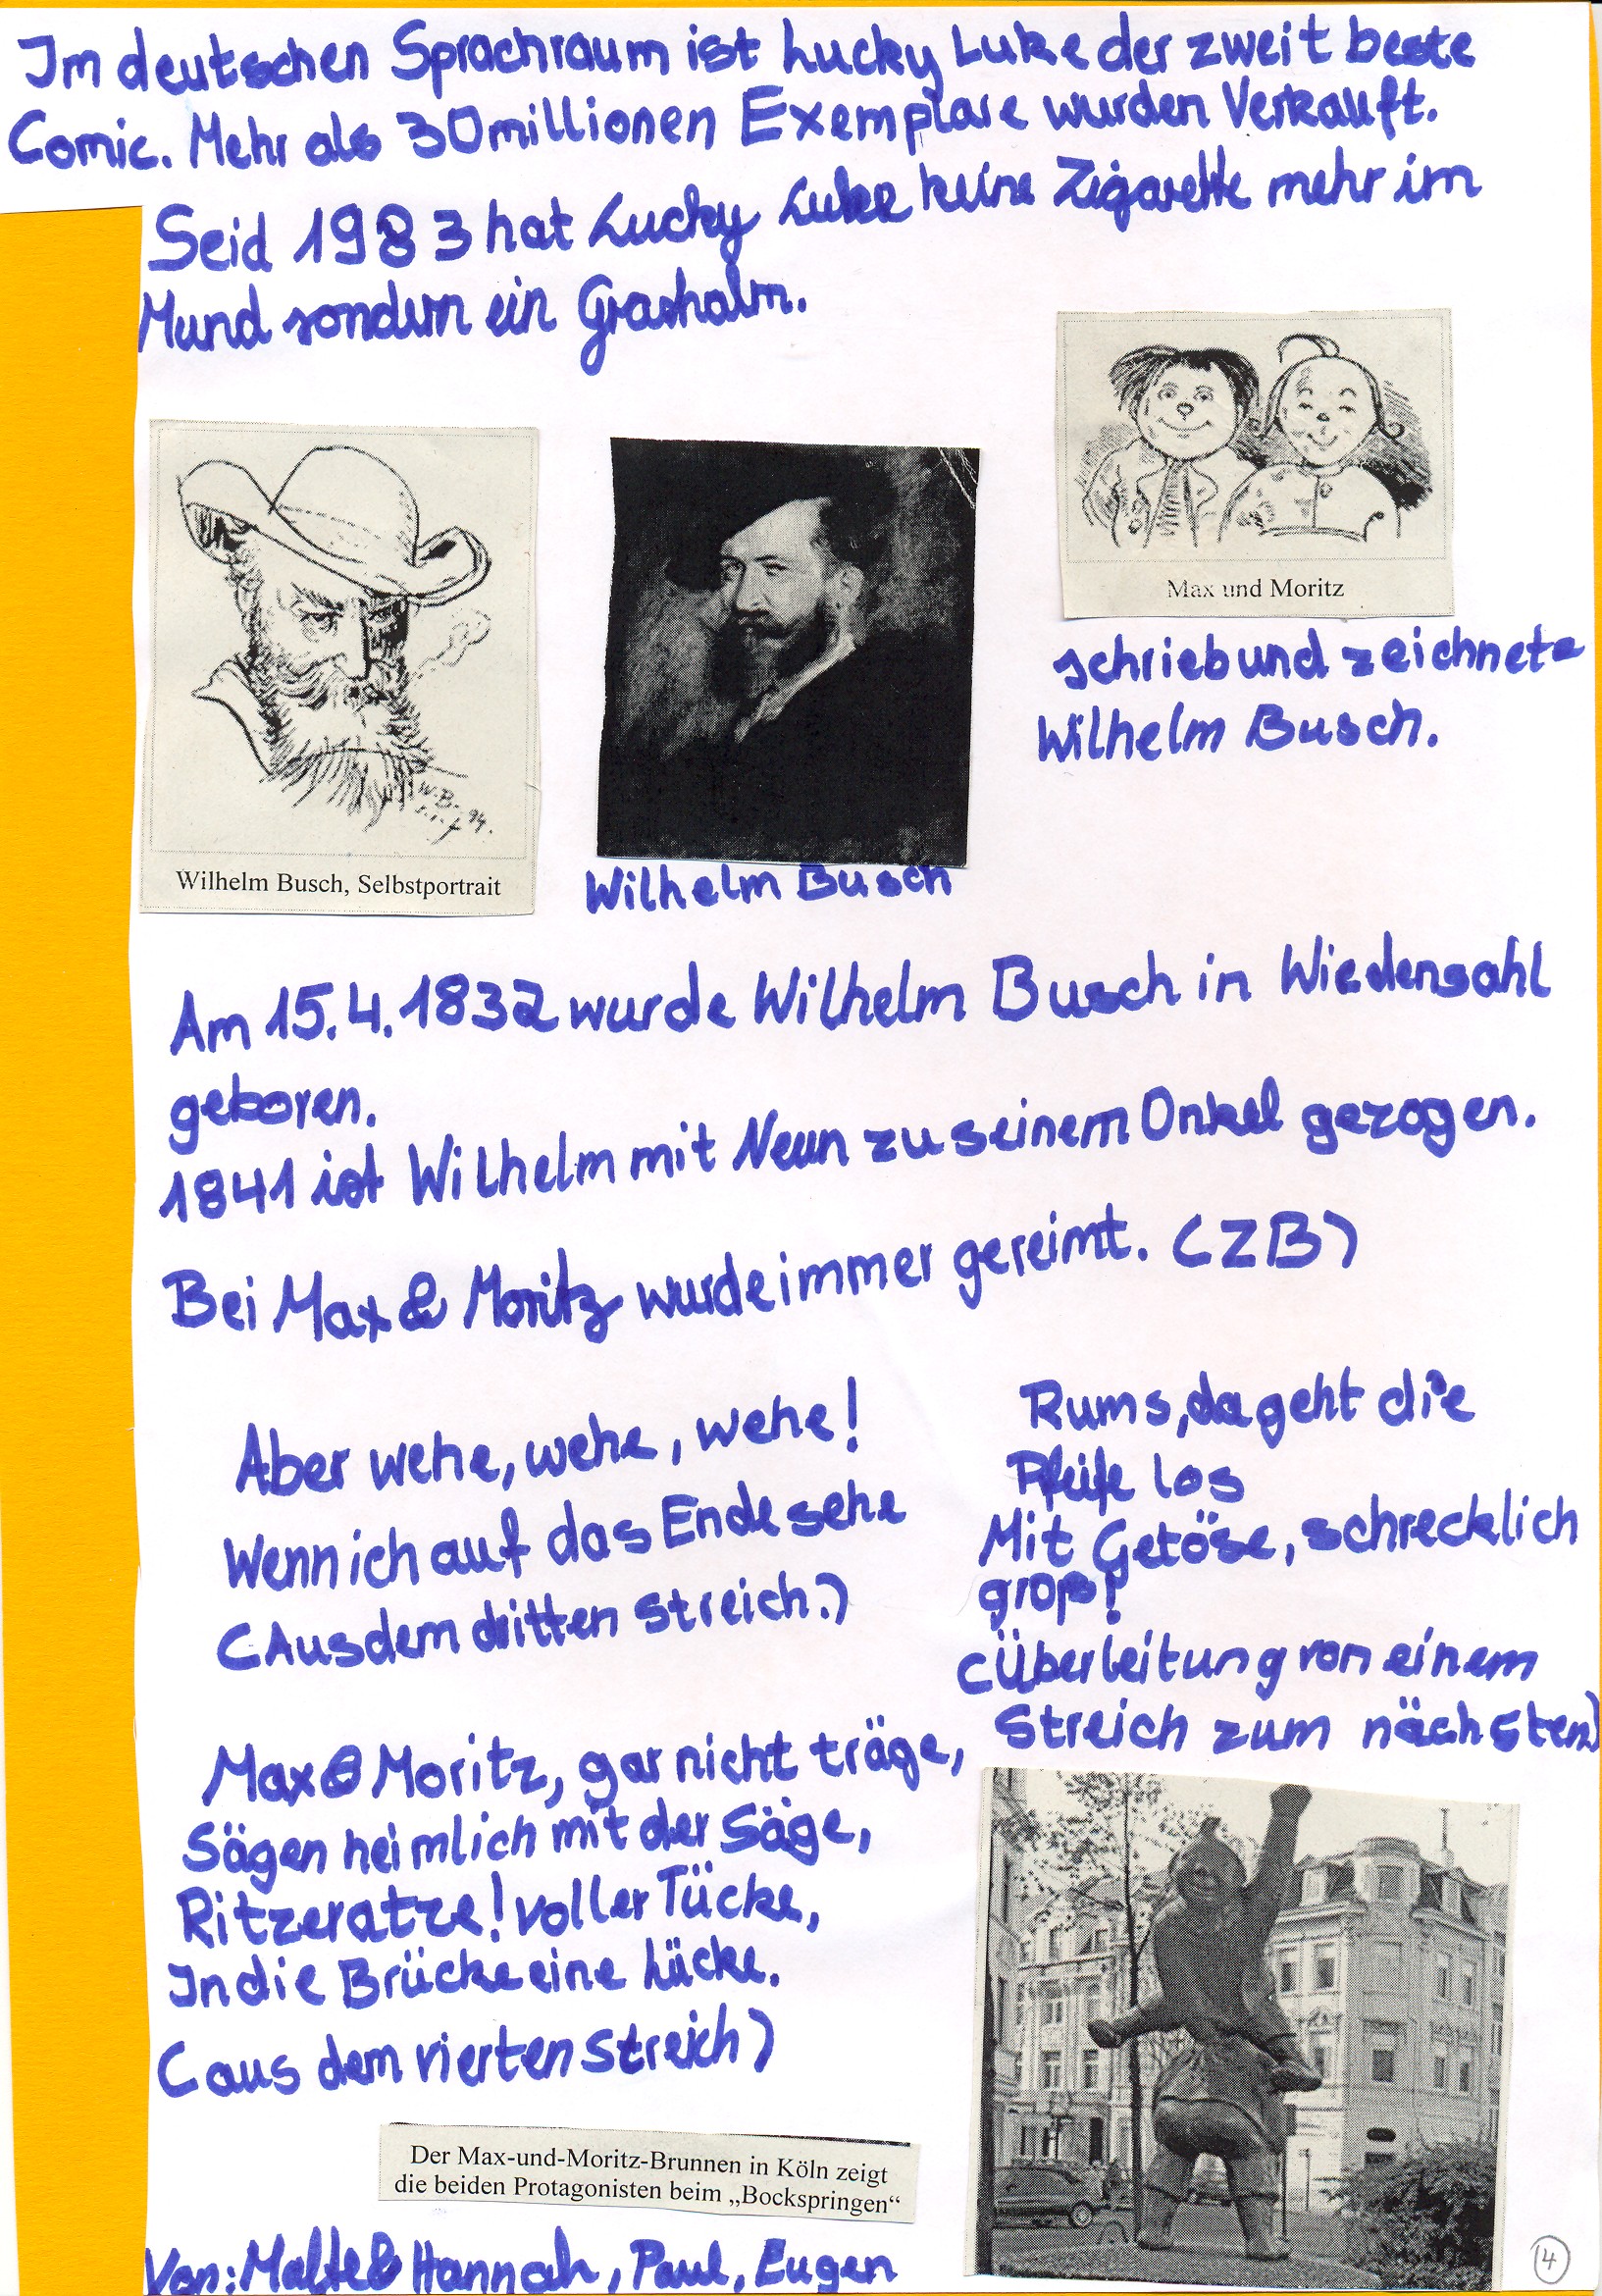 Im deutschen Sprachraum ist Lucky Luke der zweit beste
Comic. Mehr als 30 millionen Exemplare wurden Verkauft.
Seid 1983 hat Lucky Luke keine Zigarette mehr im
Mund sondern ein Grashalm.
Max und Moritz
schrieb und zeichnete
Wilhelm Busch.
W.B.
94.
Wilhelm Busch, Selbstportrait
Wilhelm Busch
Am 15.4.1832 wurde Wilhelm Busch in Wiedensahl
geboren.
1841 ist Wilhelm mit Neun zu seinem Onkel gezogen.
Bei Max & Moritz wurde immer gereimt. (ZB)
Aber wehe, wehe, wehe!
Wenn ich auf das Ende sehe
(Aus dem dritten streich.)
Rums, da geht die
Pfeife los
Mit Getöse, schrecklich
groß!
(Überleitung von einem
Streich zum nächsten)
Max & Moritz, gar nicht träge,
Sägen heimlich mit der Säge,
Ritzeratze! voller Tücke,
In die Brücke eine Lücke.
(aus dem vierten streich)
Der Max-und-Moritz-Brunnen in Köln zeigt
die beiden Protagonisten beim „Bockspringen“
Von: Malte & Hannah, Paul, Eugen
4